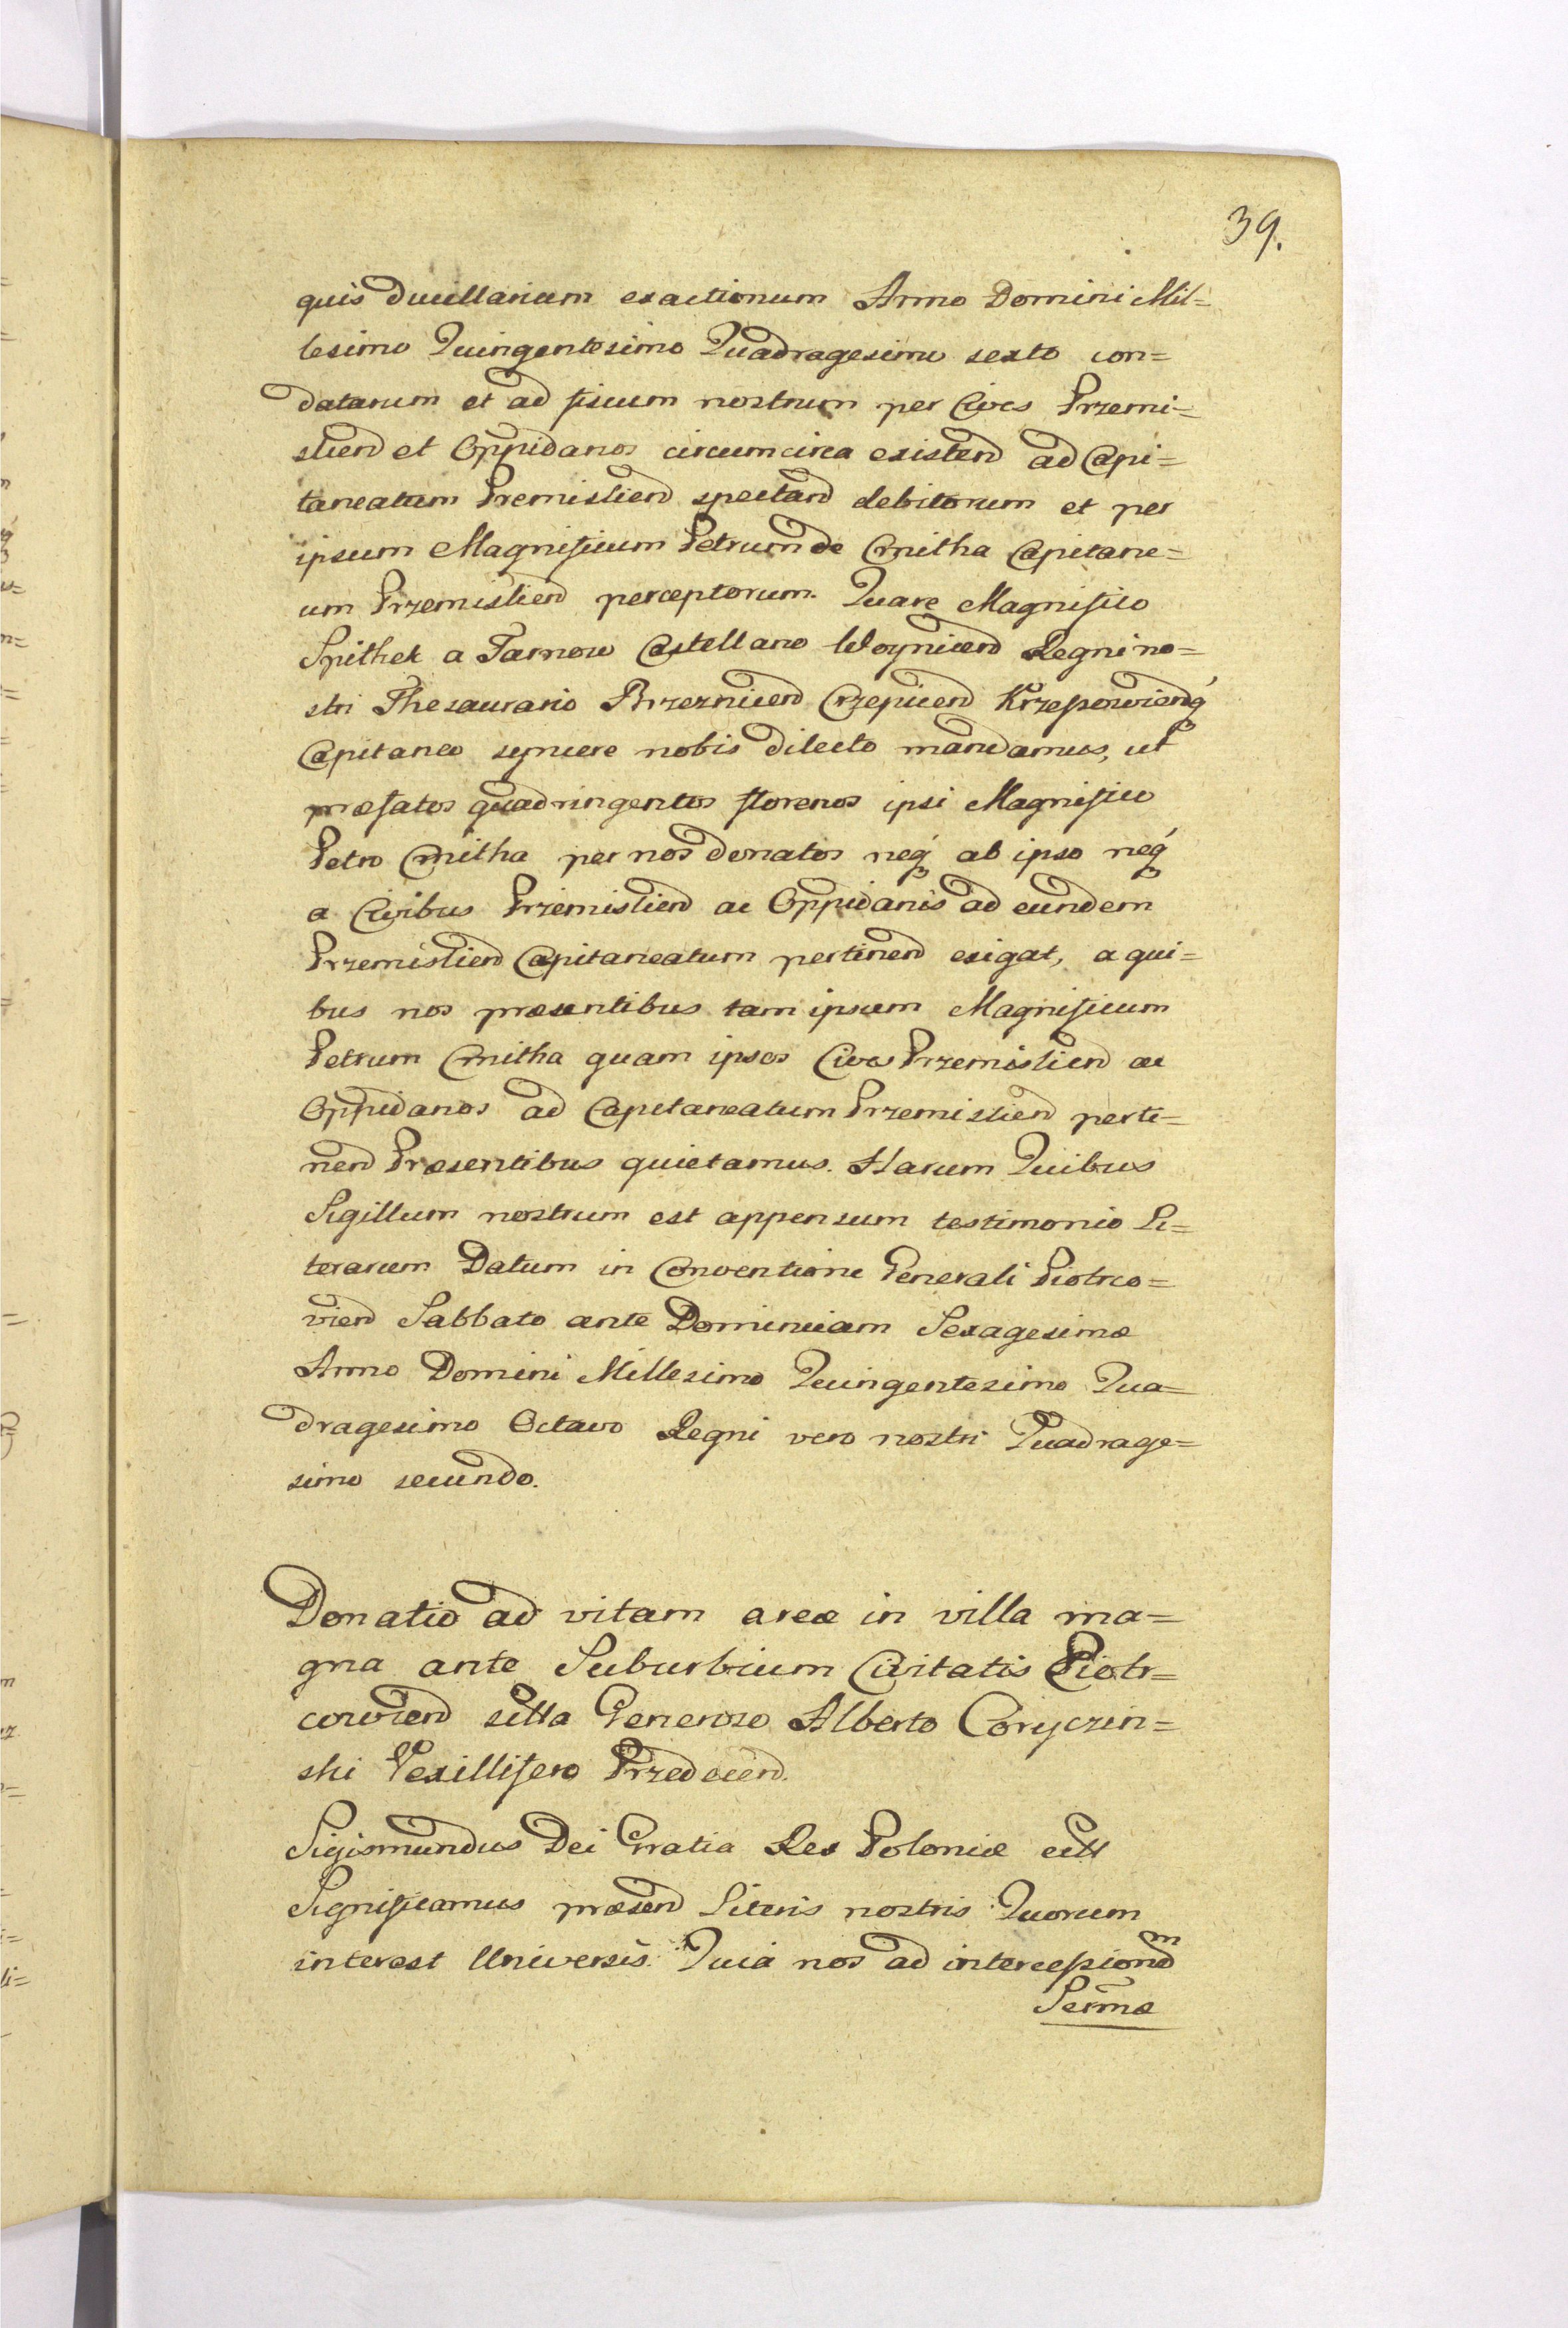 39.
quis ducillarum exactionum Anno Domini Mil=
lesimo Quingentesimo Quadragesimo sexto con=
datarum et ad fiscum nostrum per Cives Przemi=
slien et Oppidanos circumcirca existen ad Capi=
taneatum Premislien spectan debitorum et per
ipsum Magnificum Petrum de Cmitha Capitane=
um Przemislien perceptorum. Quare Magnifico
Spithek a Tarnow Castellano Woynicen Regni no=
stri Thesaurario Brzeznicen Crzepicen Krzeszowienq́
Capitaneo syncere nobis dilecto mandamus, ut
præfatos quadringentos florenos ipsi Magnifico
Petro Cmitha per nos donatos neq́ ab ipso neq́
a Civibus Przemislien ac Oppidanis ad eundem
Przemislien Capitaneatum pertinen exigat, a qui=
bus nos præsentibus tam ipsum Magnificum
Petrum Cmitha quam ipsos Cives Przemislien ac
Oppidanos ad Capitaneatum Przemislien perti=
nen Præsentibus quietamus. Harum Quibus
Sigillum nostrum est appensum testimonio Li=
terarum Datum in Conventione Generali Piotrco=
vien Sabbato ante Dominicam Sexagesimæ
Anno Domini Millesimo Quingentesimo Qua=
dragesimo Octavo Regni vero nostri Quadrage=
simo secundo.
Donatio ad vitam areæ in villa ma=
gna ante Suburbium Civitatis Piotr=
covien sitta Generoso Alberto Coryczin=
ski Vexillifero Przedecen.
Sigismundus Dei Gratia Rex Poloniæ ett
Significamus præsen Literis nostris Quorum
interest Universis. Quia nos ad intercessionem
Sermæ